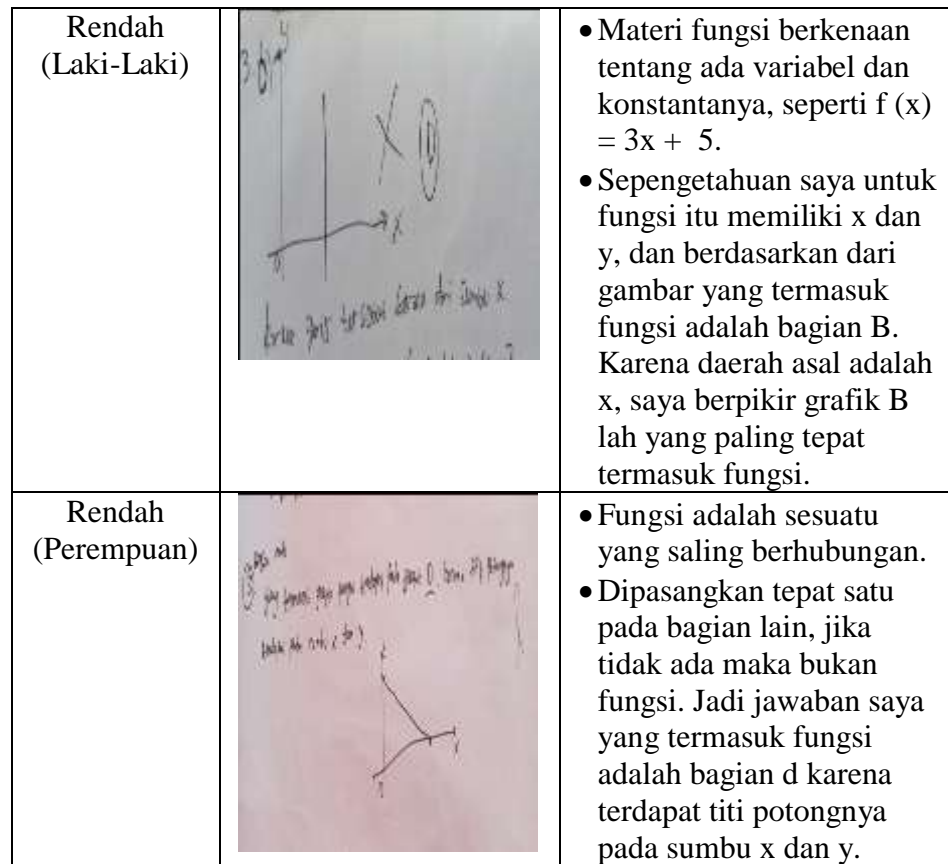 Rendah
(Laki-Laki)
3
y
x
0
• Materi fungsi berkenaan
tentang ada variabel dan
konstantanya, seperti f (x)
= 3x + 5.
• Sepengetahuan saya untuk
fungsi itu memiliki x dan
y, dan berdasarkan dari
gambar yang termasuk
fungsi adalah bagian B.
Karena daerah asal adalah
x, saya berpikir grafik B
lah yang paling tepat
termasuk fungsi.
Rendah
(Perempuan)
• Fungsi adalah sesuatu
yang saling berhubungan.
• Dipasangkan tepat satu
pada bagian lain, jika
tidak ada maka bukan
fungsi. Jadi jawaban saya
yang termasuk fungsi
adalah bagian d karena
terdapat titi potongnya
pada sumbu x dan y.